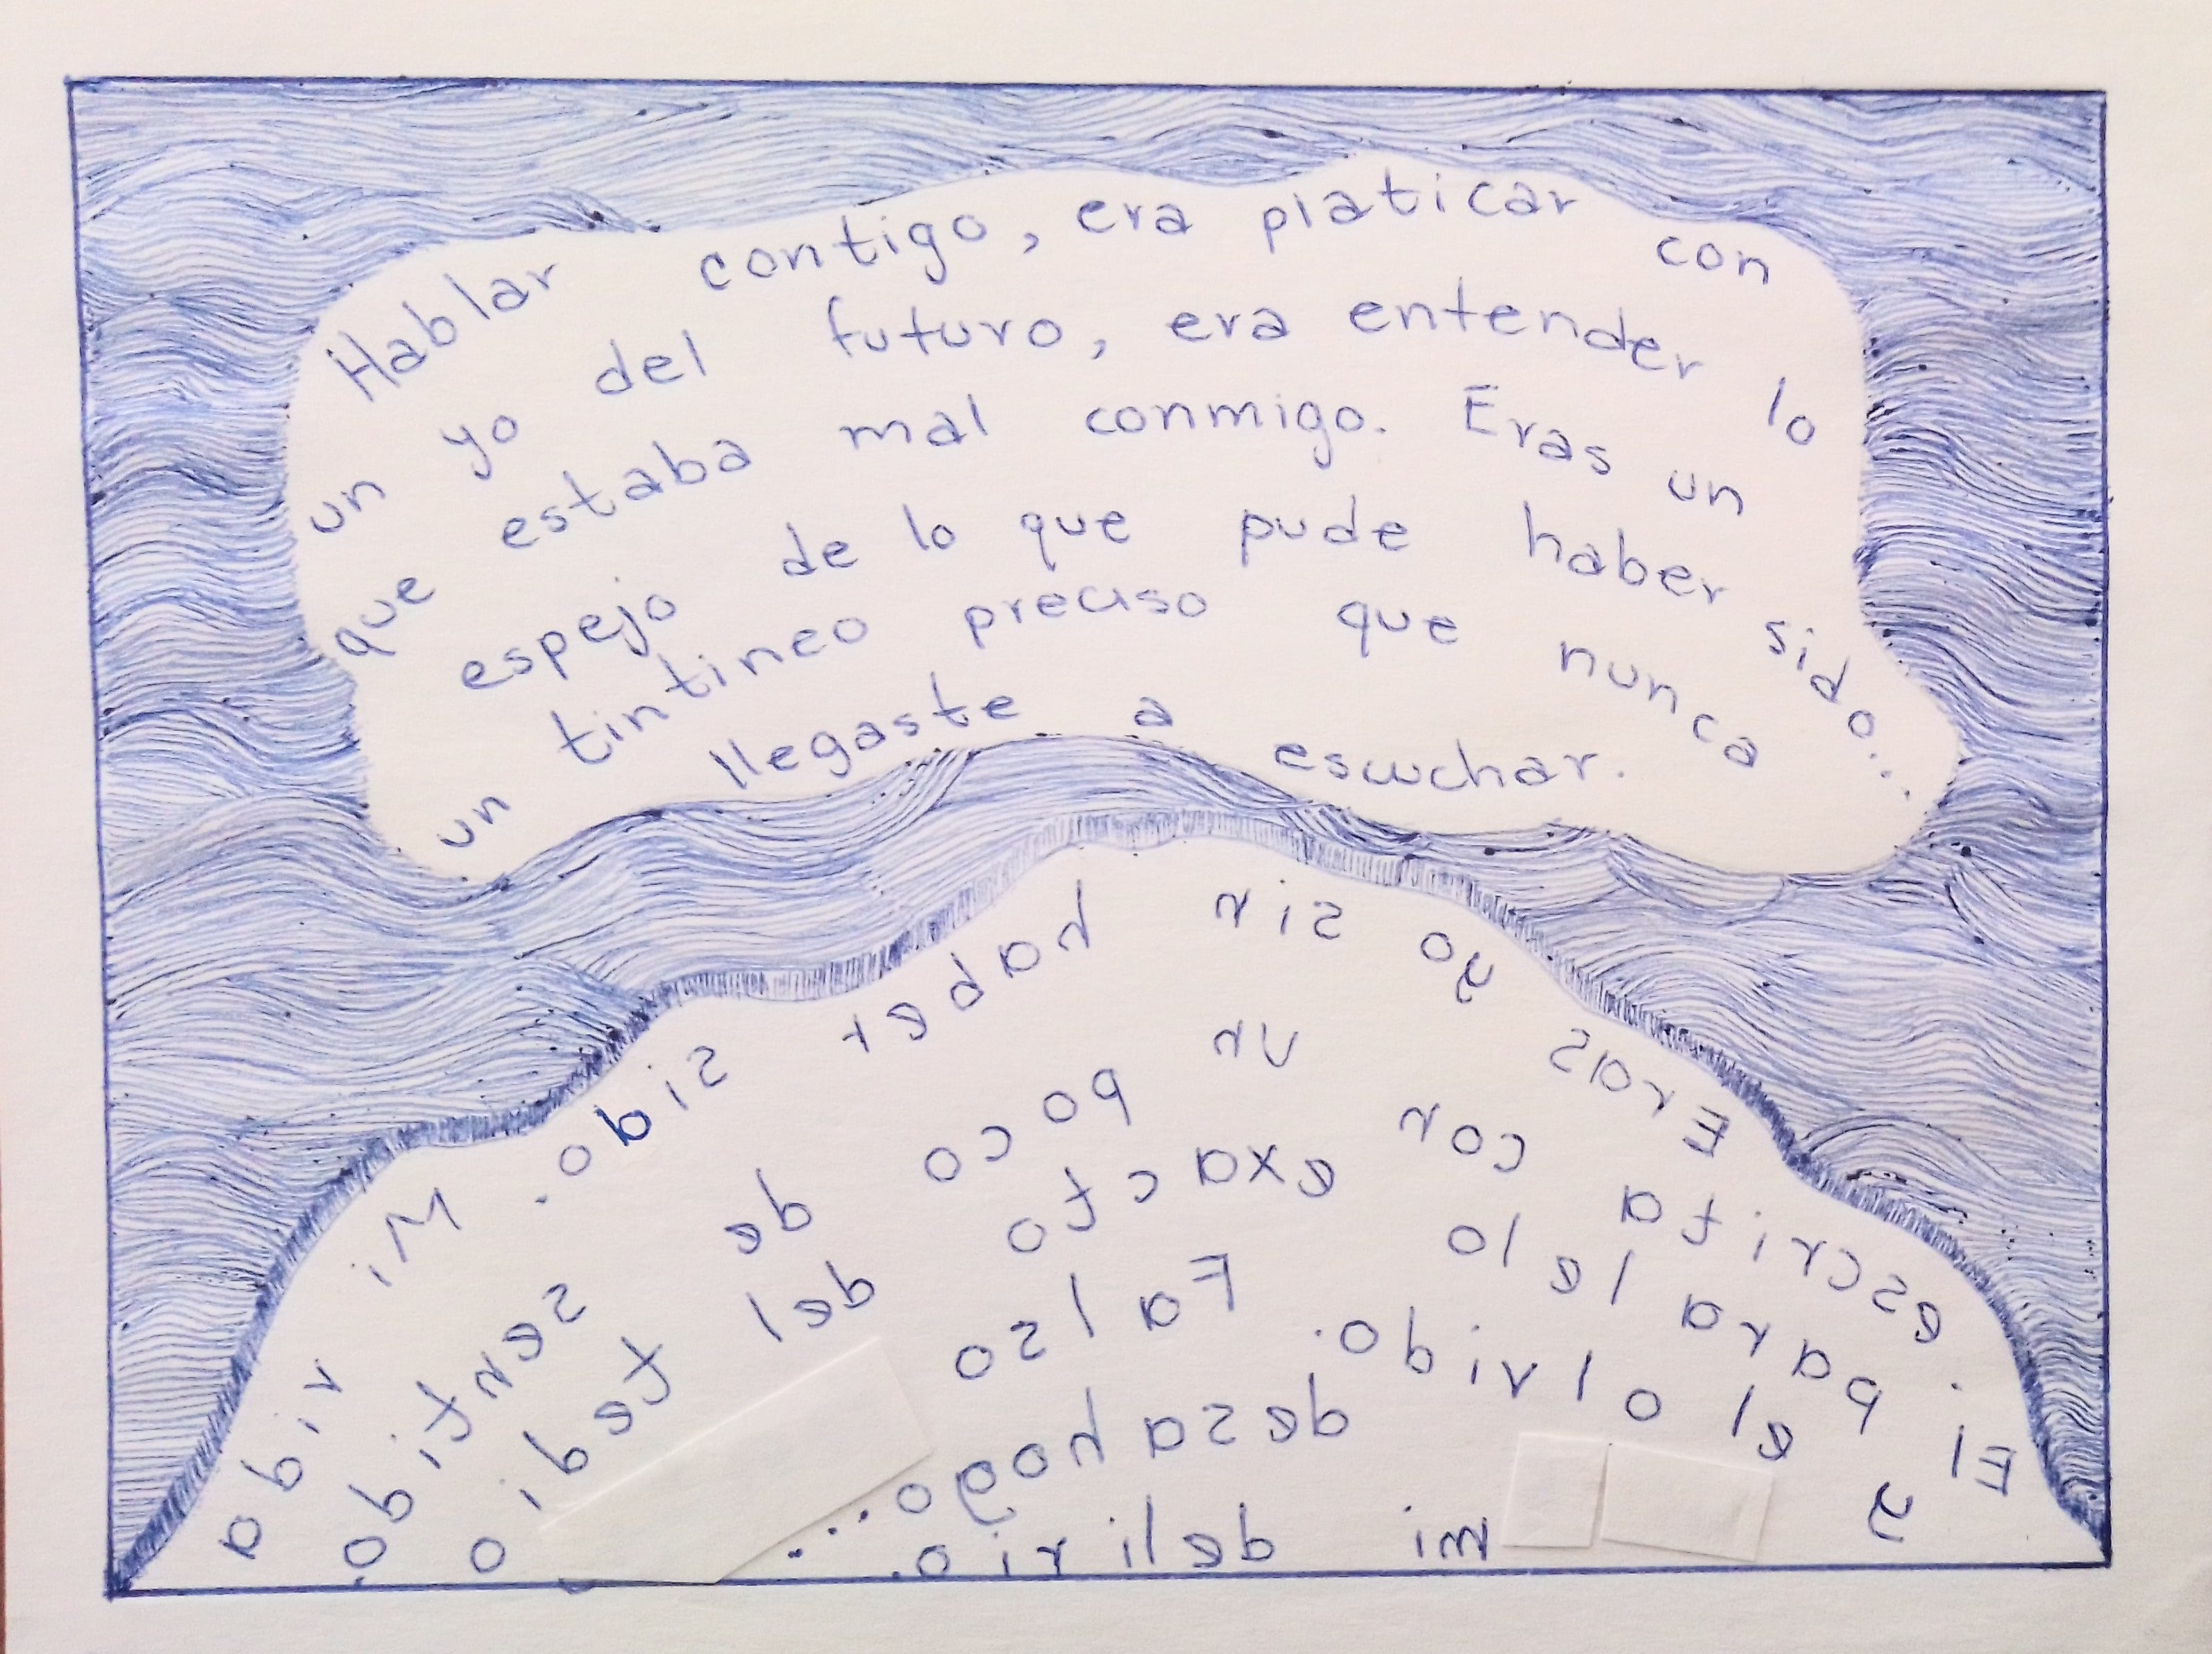 Hablar contigo, era platicar con
un yo del futuro, era entender lo
que estaba mal conmigo. Eras un
espejo de lo que pude haber sido...
un tintineo preciso que nunca
llegaste a escuchar.
Eras yo sin haber sido. Mi vida
escrita con un poco de sentido.
El paralelo exacto del tedio
y el olvido. Falso
desahogo...
mi delirio.